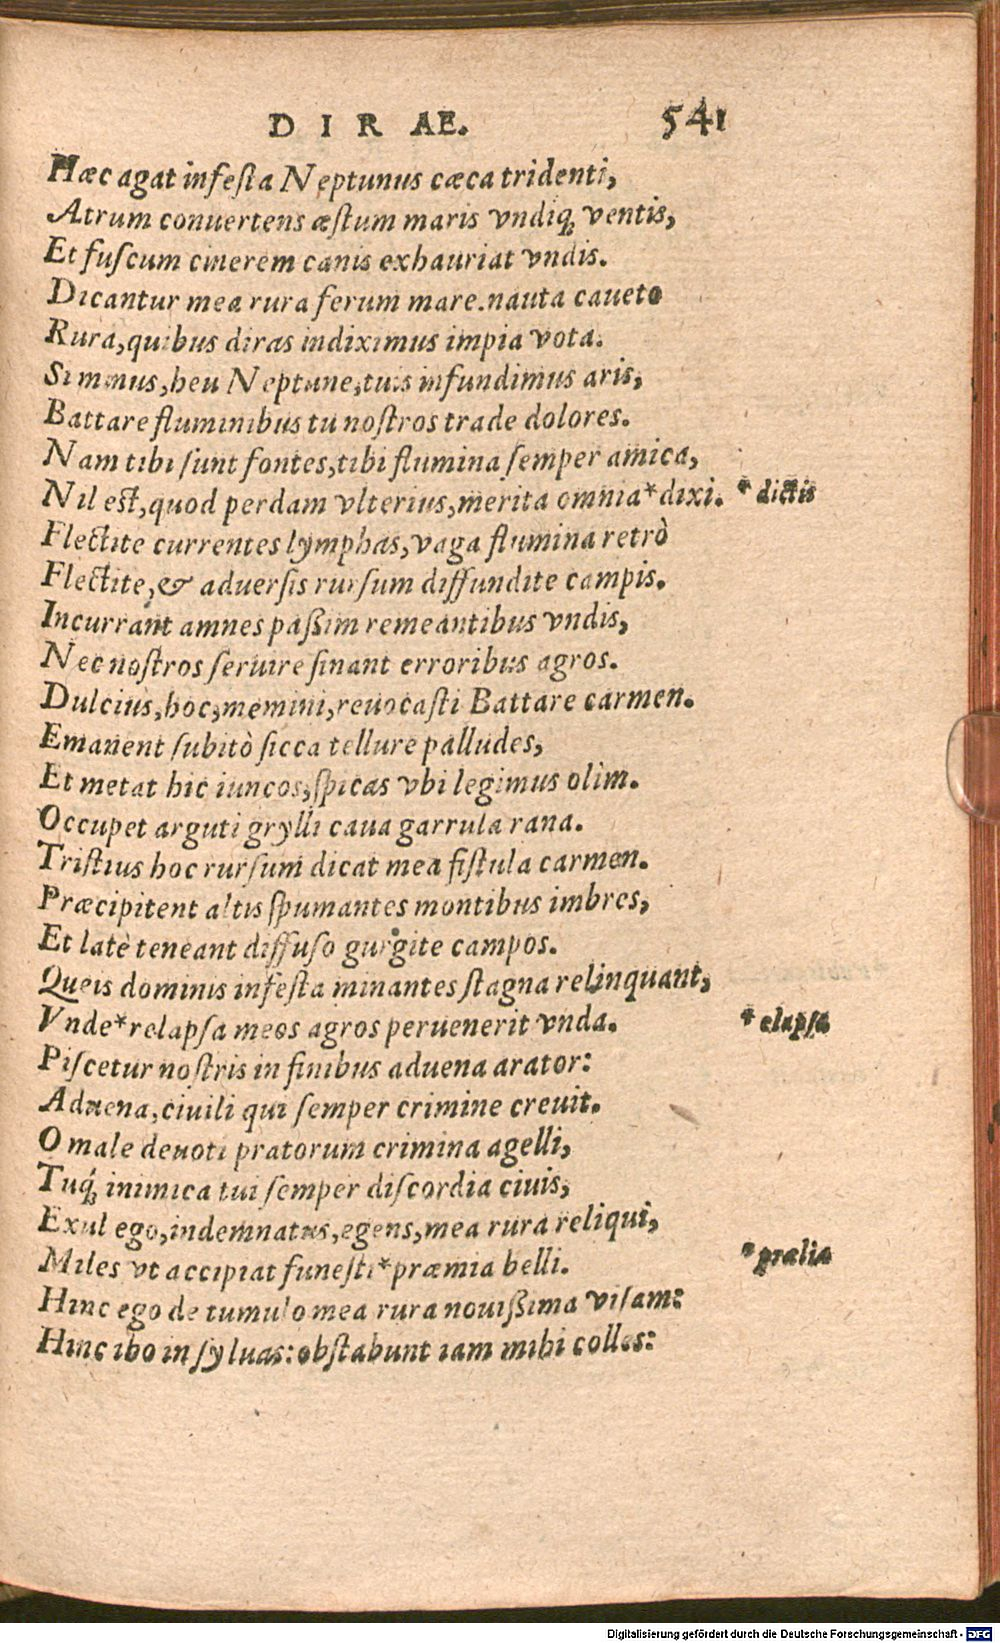 DIRAE. 541
Hæc agat infeſta Neptunus cæca tridenti,
Atrum conuertens æſtum maris vndiq; ventis,
Et fuſcum cinerem canis exhauriat vndis.
Dicantur mea rura ferum mare.nauta caueto
Rura,quibus diras indiximus impia vota.
Si minus,heu Neptune,tuis infundimus aris,
Battare fluminibus tu noſtros trade dolores.
Nam tibi ſunt fontes,tibi flumina ſemper amica,
Nil est,quod perdam vlterius,merita omnia*dixi. * dictis
Flectite currentes lymphas,vaga flumina retrò
Flectite,& aduerſis rurſum diffundite campis.
Incurrant amnes paßim remeantibus vndis,
Nec noſtros ſeruire ſinant erroribus agros.
Dulcius,hoc,memini,reuocaſti Battare carmen.
Emanent ſubitò ſicca tellure palludes,
Et metat hic iuncos,ſpicas vbi legimus olim.
Occupet arguti grylli caua garrula rana.
Triſtius hoc rurſum dicat mea fiſtula carmen.
Præcipitent altis ſpumantes montibus imbres,
Et latè teneant diffuſo gurgite campos.
Queis dominis infeſta minantes ſtagna relinquant,
Vnde*relapſa meos agros peruenerit vnda. * elapſa
Piſcetur noſtris in finibus aduena arator:
Aduena,ciuili qui ſemper crimine creuit.
O male deuoti pratorum crimina agelli,
Tuq́; inimica tui ſemper diſcordia ciuis,
Exul ego,indemnatus,egens,mea rura reliqui,
Miles vt accipiat funeſti*præmia belli. * prælia
Hinc ego de tumulo mea rura nouißima viſam:
Hinc ibo in ſyluas:obſtabunt iam mihi colles:
Digitalisierung gefördert durch die Deutsche Forschungsgemeinschaft - DFG